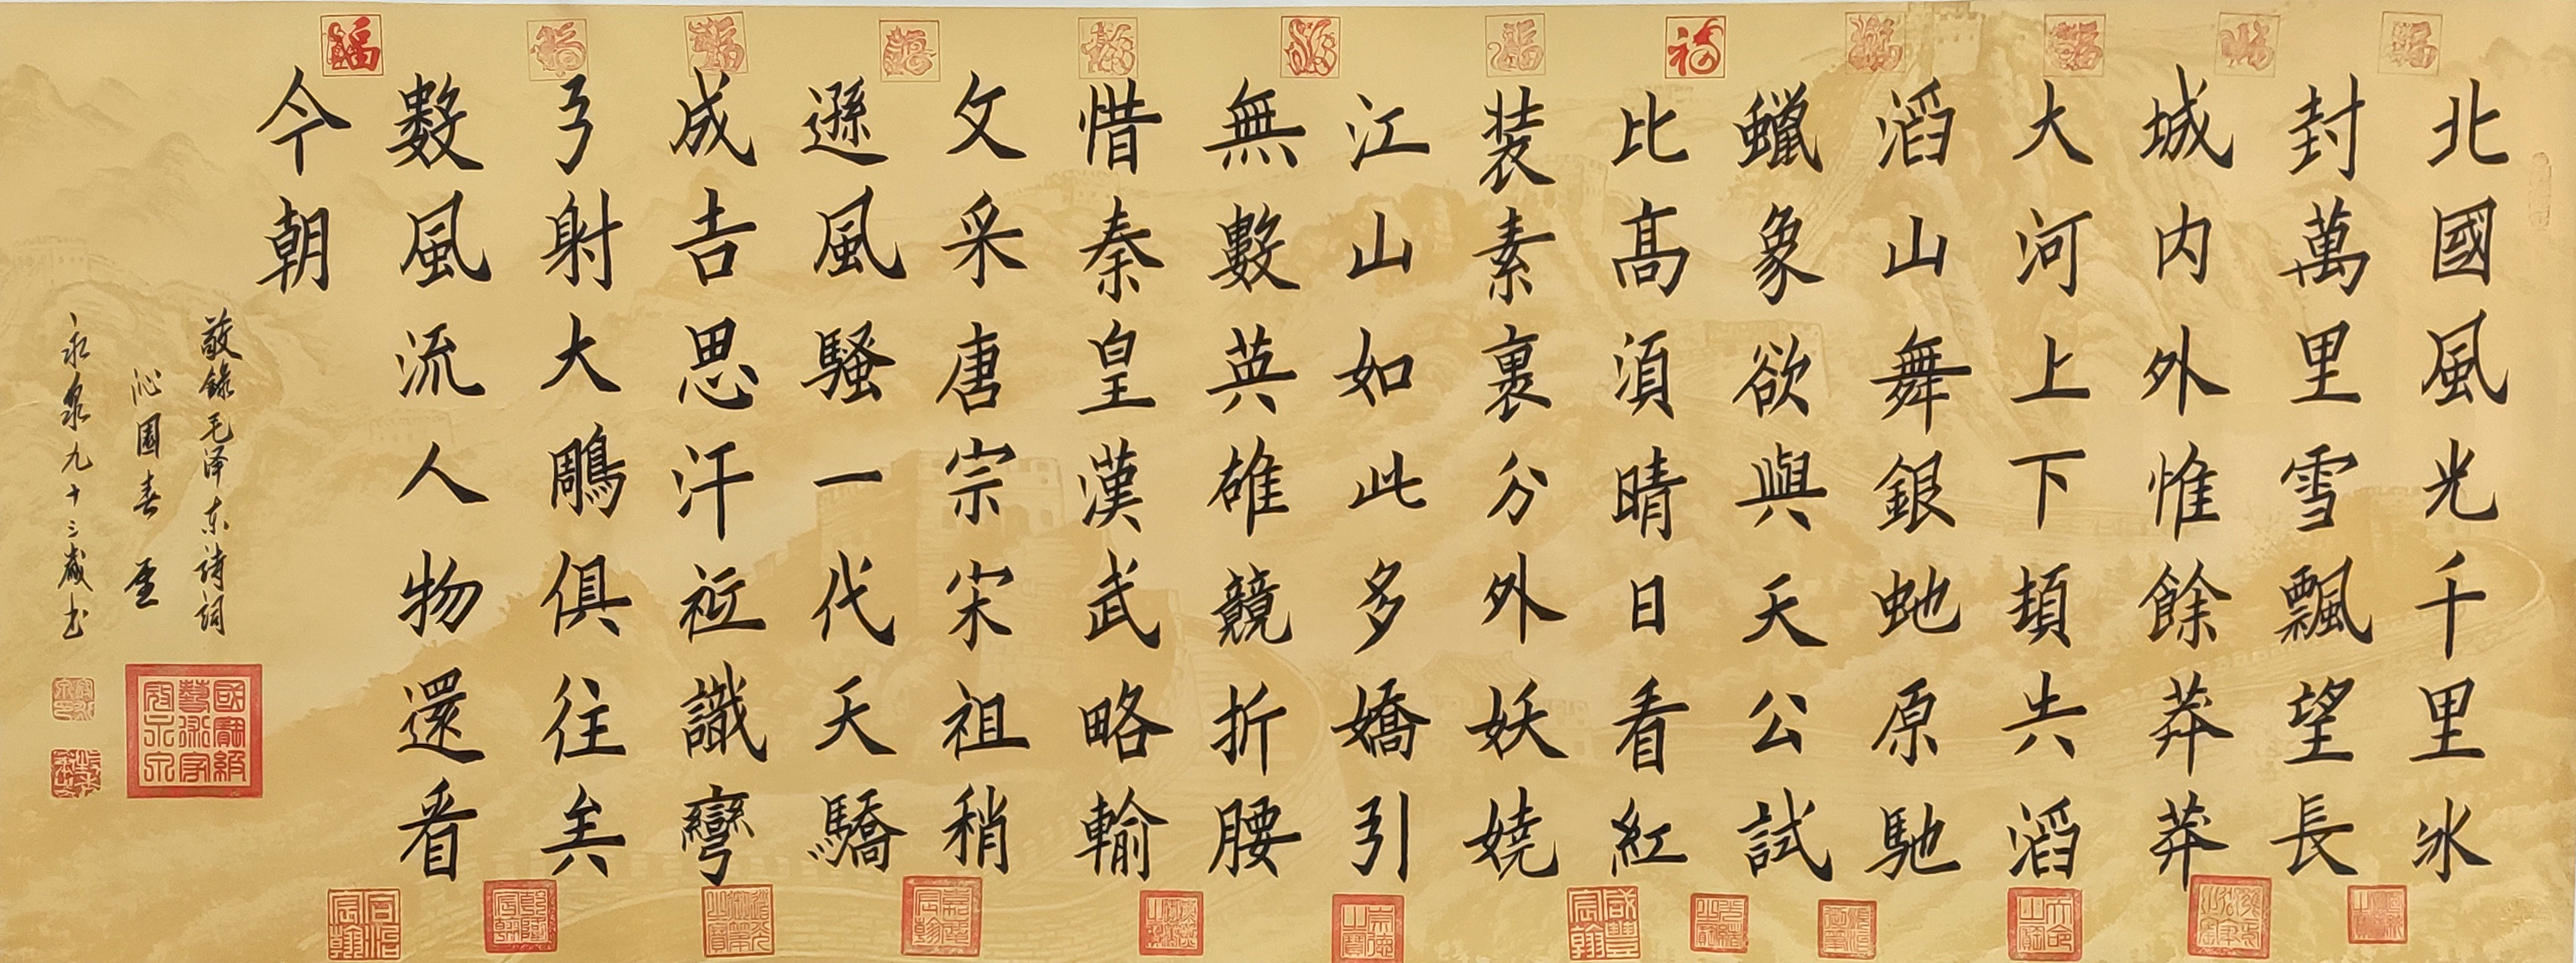 北國風光千里冰
封萬里雪飄望長
城内外惟餘莽莽
大河上下頓失滔
滔山舞銀蛇原馳
蠟象欲與天公試
比高須晴日看紅
装素裹分外妖嬈
江山如此多嬌引
無數英雄競折腰
惜秦皇漢武略輸
文采唐宗宋祖稍
遜風騷一代天驕
成吉思汗祗識彎
弓射大鵰俱往矣
數風流人物還看
今朝
敬錄毛泽东诗詞
沁園春 雪
永泉九十三歲书